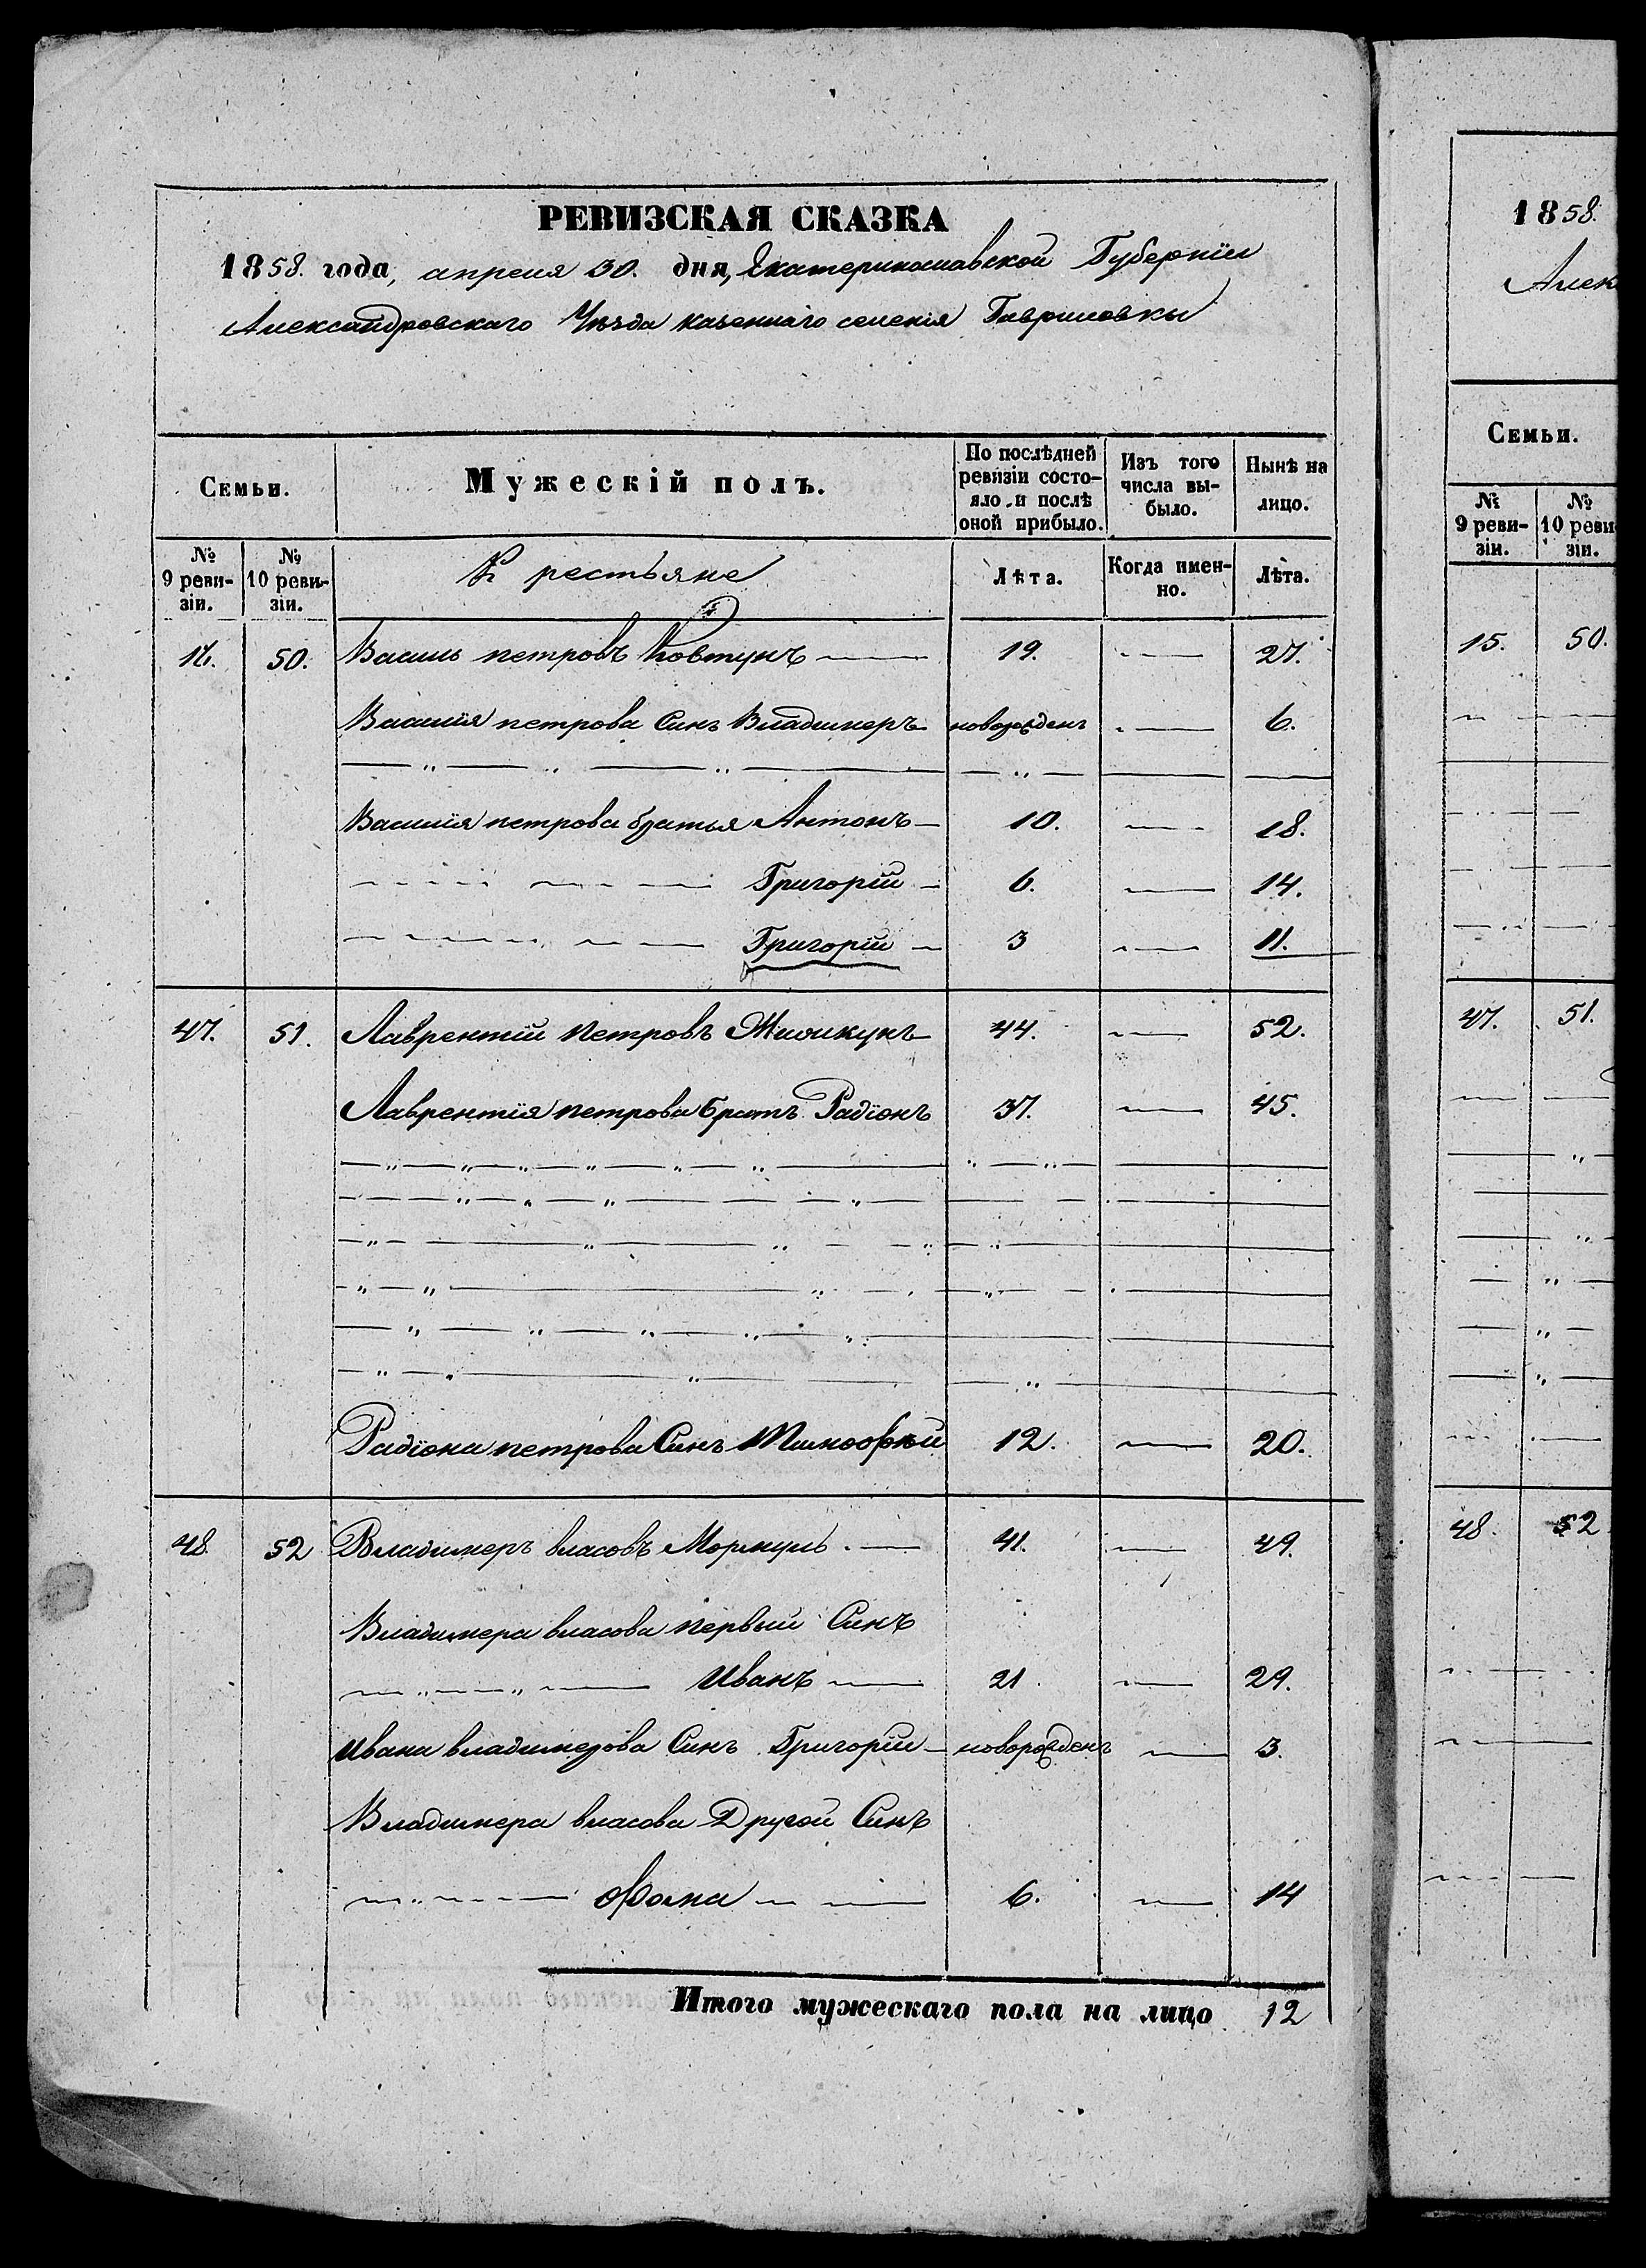 РЕВИЗСКАЯ СКАЗКА
1858. года, апреля 30. дня, Екатеринославской Губернїи
Александровскаго Уѣзда казеннаго селенія Гавриловки
Семьи. Мужескій полъ. По послѣдней ревизіи состояло и послѣ оной прибыло. Изъ того числа выбыло. Нынѣ на лицо.
№ 9 ревизіи. № 10 ревизіи. Крестьяне Лѣта. Когда именно. Лѣта.
50. Василь петровъ Ковтунъ 19. 27.
Василія петрова Синъ Владимеръ новорожденъ 6.
Василія петрова братья Антонъ 10. 18.
Григорій 6. 14.
Григорій 3 11.
47. 51. Лаврентій петровъ 44. 52.
Лаврентія петрова братъ Радїонъ 37. 45.
Радїона петрова Синъ Тимофѣй 12. 20.
48. 52 Владимеръ власовъ Моркуль 41. 49.
Владимера власова первый Синъ
Иванъ 21. 29.
Ивана владимерова Синъ Григорій новорожденъ 3.
Владимера власова Другой Синъ
Фома 6. 14
Итого мужескаго пола на лицо 12
1858.
Алек
Семьи.
№ 9 ревизіи. № 10 реви зіи.
15. 50.
47. 51.
48. 52